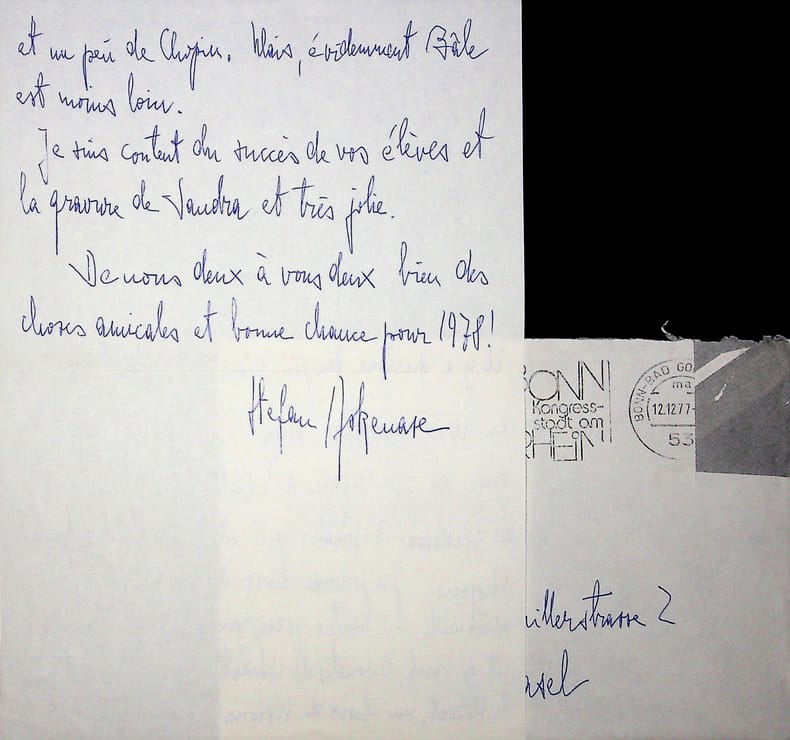 et un peu de Chopin. Mais, évidemment Bâle
est moins loin.
Je suis content du succès de vos élèves et
la gravure de Sandra et très jolie.
De nous deux à vous deux bien des
choses amicales et bonne chance pour 1978!
Stefan Askenase
BONN
Kongress-
stadt am
RHEIN
BONN-BAD GO
ma
12.12.77-
53
illerstrasse 2
asel